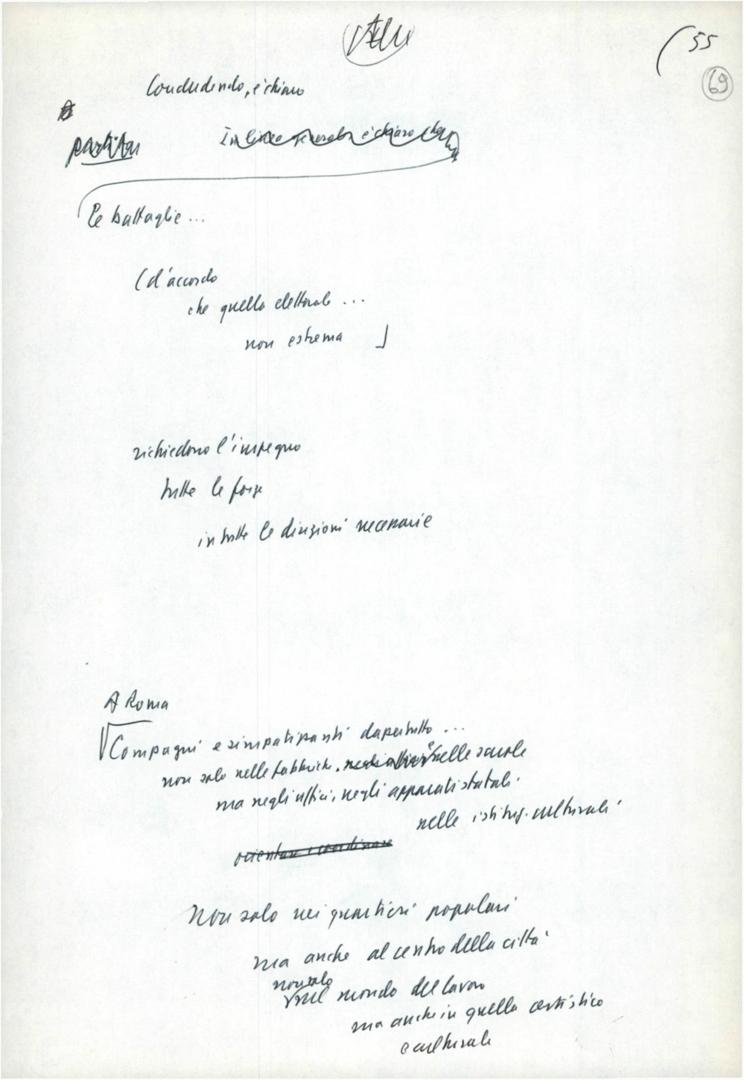 55
69
Concludendo, è chiaro
partito
In linea generale è chiaro che
le battaglie...
(d'accordo
che quella elettorale...
non estrema ]
richiedono l'impegno
tutte le forze
in tutte le direzioni necessarie
A Roma
Compagni e simpatizzanti dapertutto ...
non solo nelle fabbriche, nelle scuole
ma negli uffici, negli apparati statali
nelle istituz. culturali
orientare e coordinare
Non solo nei quartieri popolari
ma anche al centro della città
non solo
nel mondo del lavoro
ma anche in quello artistico
e culturale